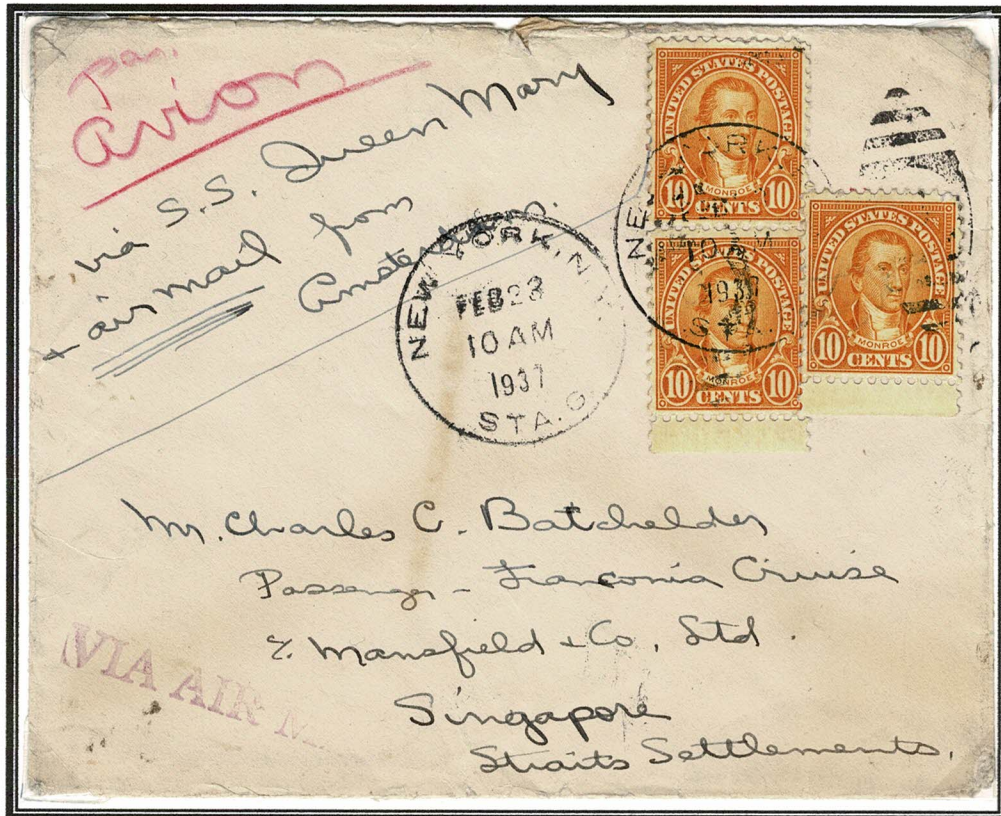 par
avion
via S.S. Queen Mary
+ airmail from
Amsterdam.
NEW YORK, N.Y.
FEB 23
10 AM
1937
STA. G.
UNITED STATES POSTAGE
10 MONROE 10
CENTS
NEW YORK
10 AM
1937
STA.
UNITED STATES POSTAGE
10 MONROE 10
CENTS
UNITED STATES POSTAGE
10 MONROE 10
CENTS
Mr. Charles C. Batchelder
Passenger - Franconia Cruise
% Mansfield + Co, Ltd.
Singapore
Straits Settlements.
VIA AIR M